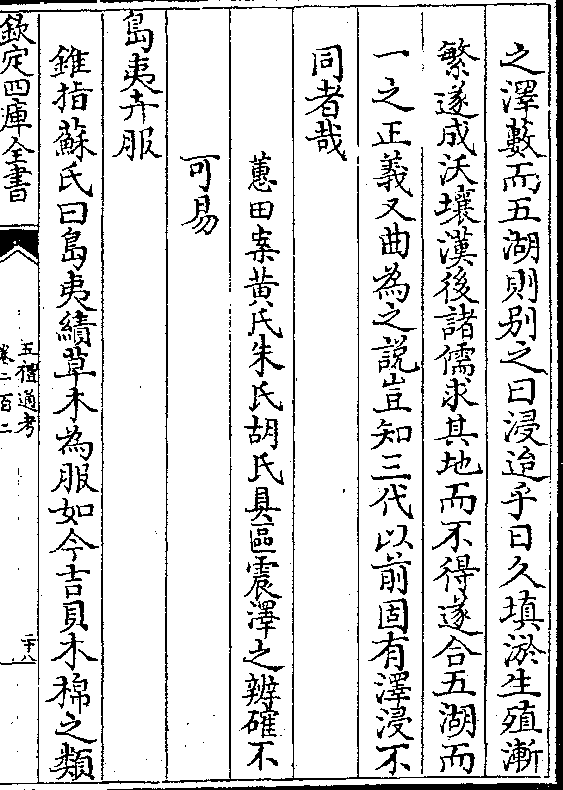 之澤藪而五湖則别之曰浸迨乎日久填淤生殖漸
繁遂成沃壤漢後諸儒求其地而不得遂合五湖而
一之正義又曲為之說豈知三代以前固有澤浸不
同者哉
蕙田案黄氏朱氏胡氏具區震澤之辨確不
可易
島夷卉服
錐指蘇氏曰島夷績草木為服如今吉貝木棉之類
欽定四庫全書
五禮通考
卷二百二
二十八